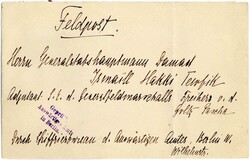 Feldpost.
Herrn Generalstabshauptmann Damad
Ismaill Hakki Tewfik
Adjutant S.E. d. Generalfeldmarschalls Freiherr v. d.
Goltz Pascha
Durch Chiffrierbureau des Auswärtigen Amtes, Berlin W.
Wilhelmstr.